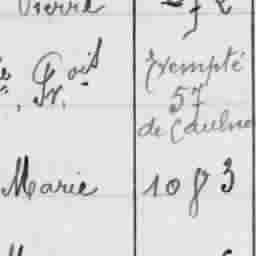 Pierre
Fr. ois Exempté
57
de Caulne
Marie 1083